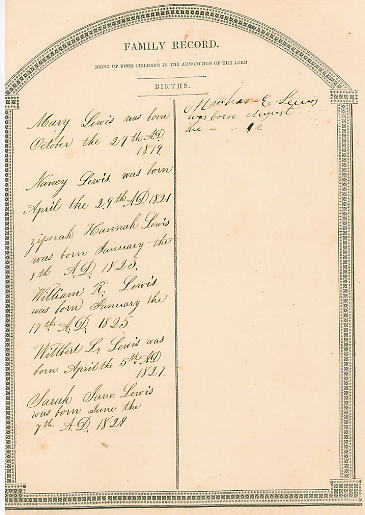 FAMILY RECORD.
BRING UP YOUR CHILDREN IN THE ADMONITION OF THE LORD
BIRTHS.
Mary Lewis was born
October the 27th A.D.
1819
Nancy Lewis was born
April the 29th A.D 1821
Ziporah Hannah Lewis
was born January the
1th A.D. 1823.
William R. Lewis
was born January the
17th A.D. 1825
Wilbert L. Lewis was
born April the 5th AD
1827
Sarah Jane Lewis
was born June the
7th A.D. 1829
E Lewis
was born August
the